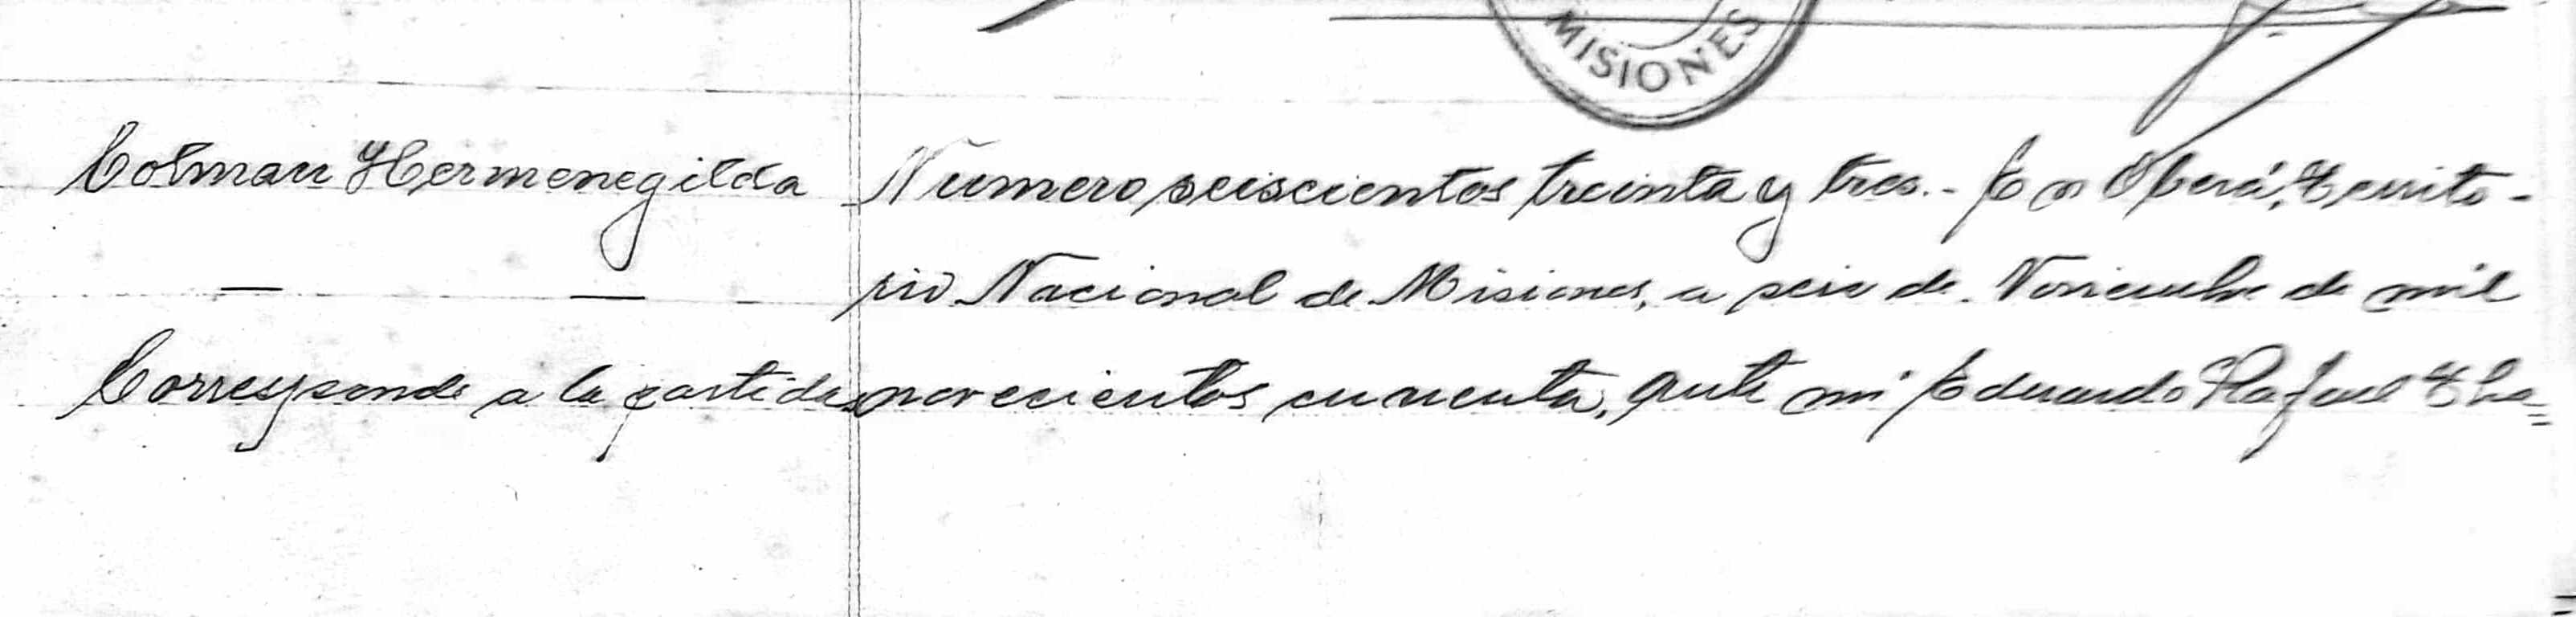 MISIONES
Colman Hermenegilda
— —
Corresponde a la partida
Numero seiscientos treinta y tres.- En Oberá, Territo-
rio Nacional de Misiones, a seis de Noviembre de mil
novecientos cincuenta, ante mi Eduardo Rafael Cha=